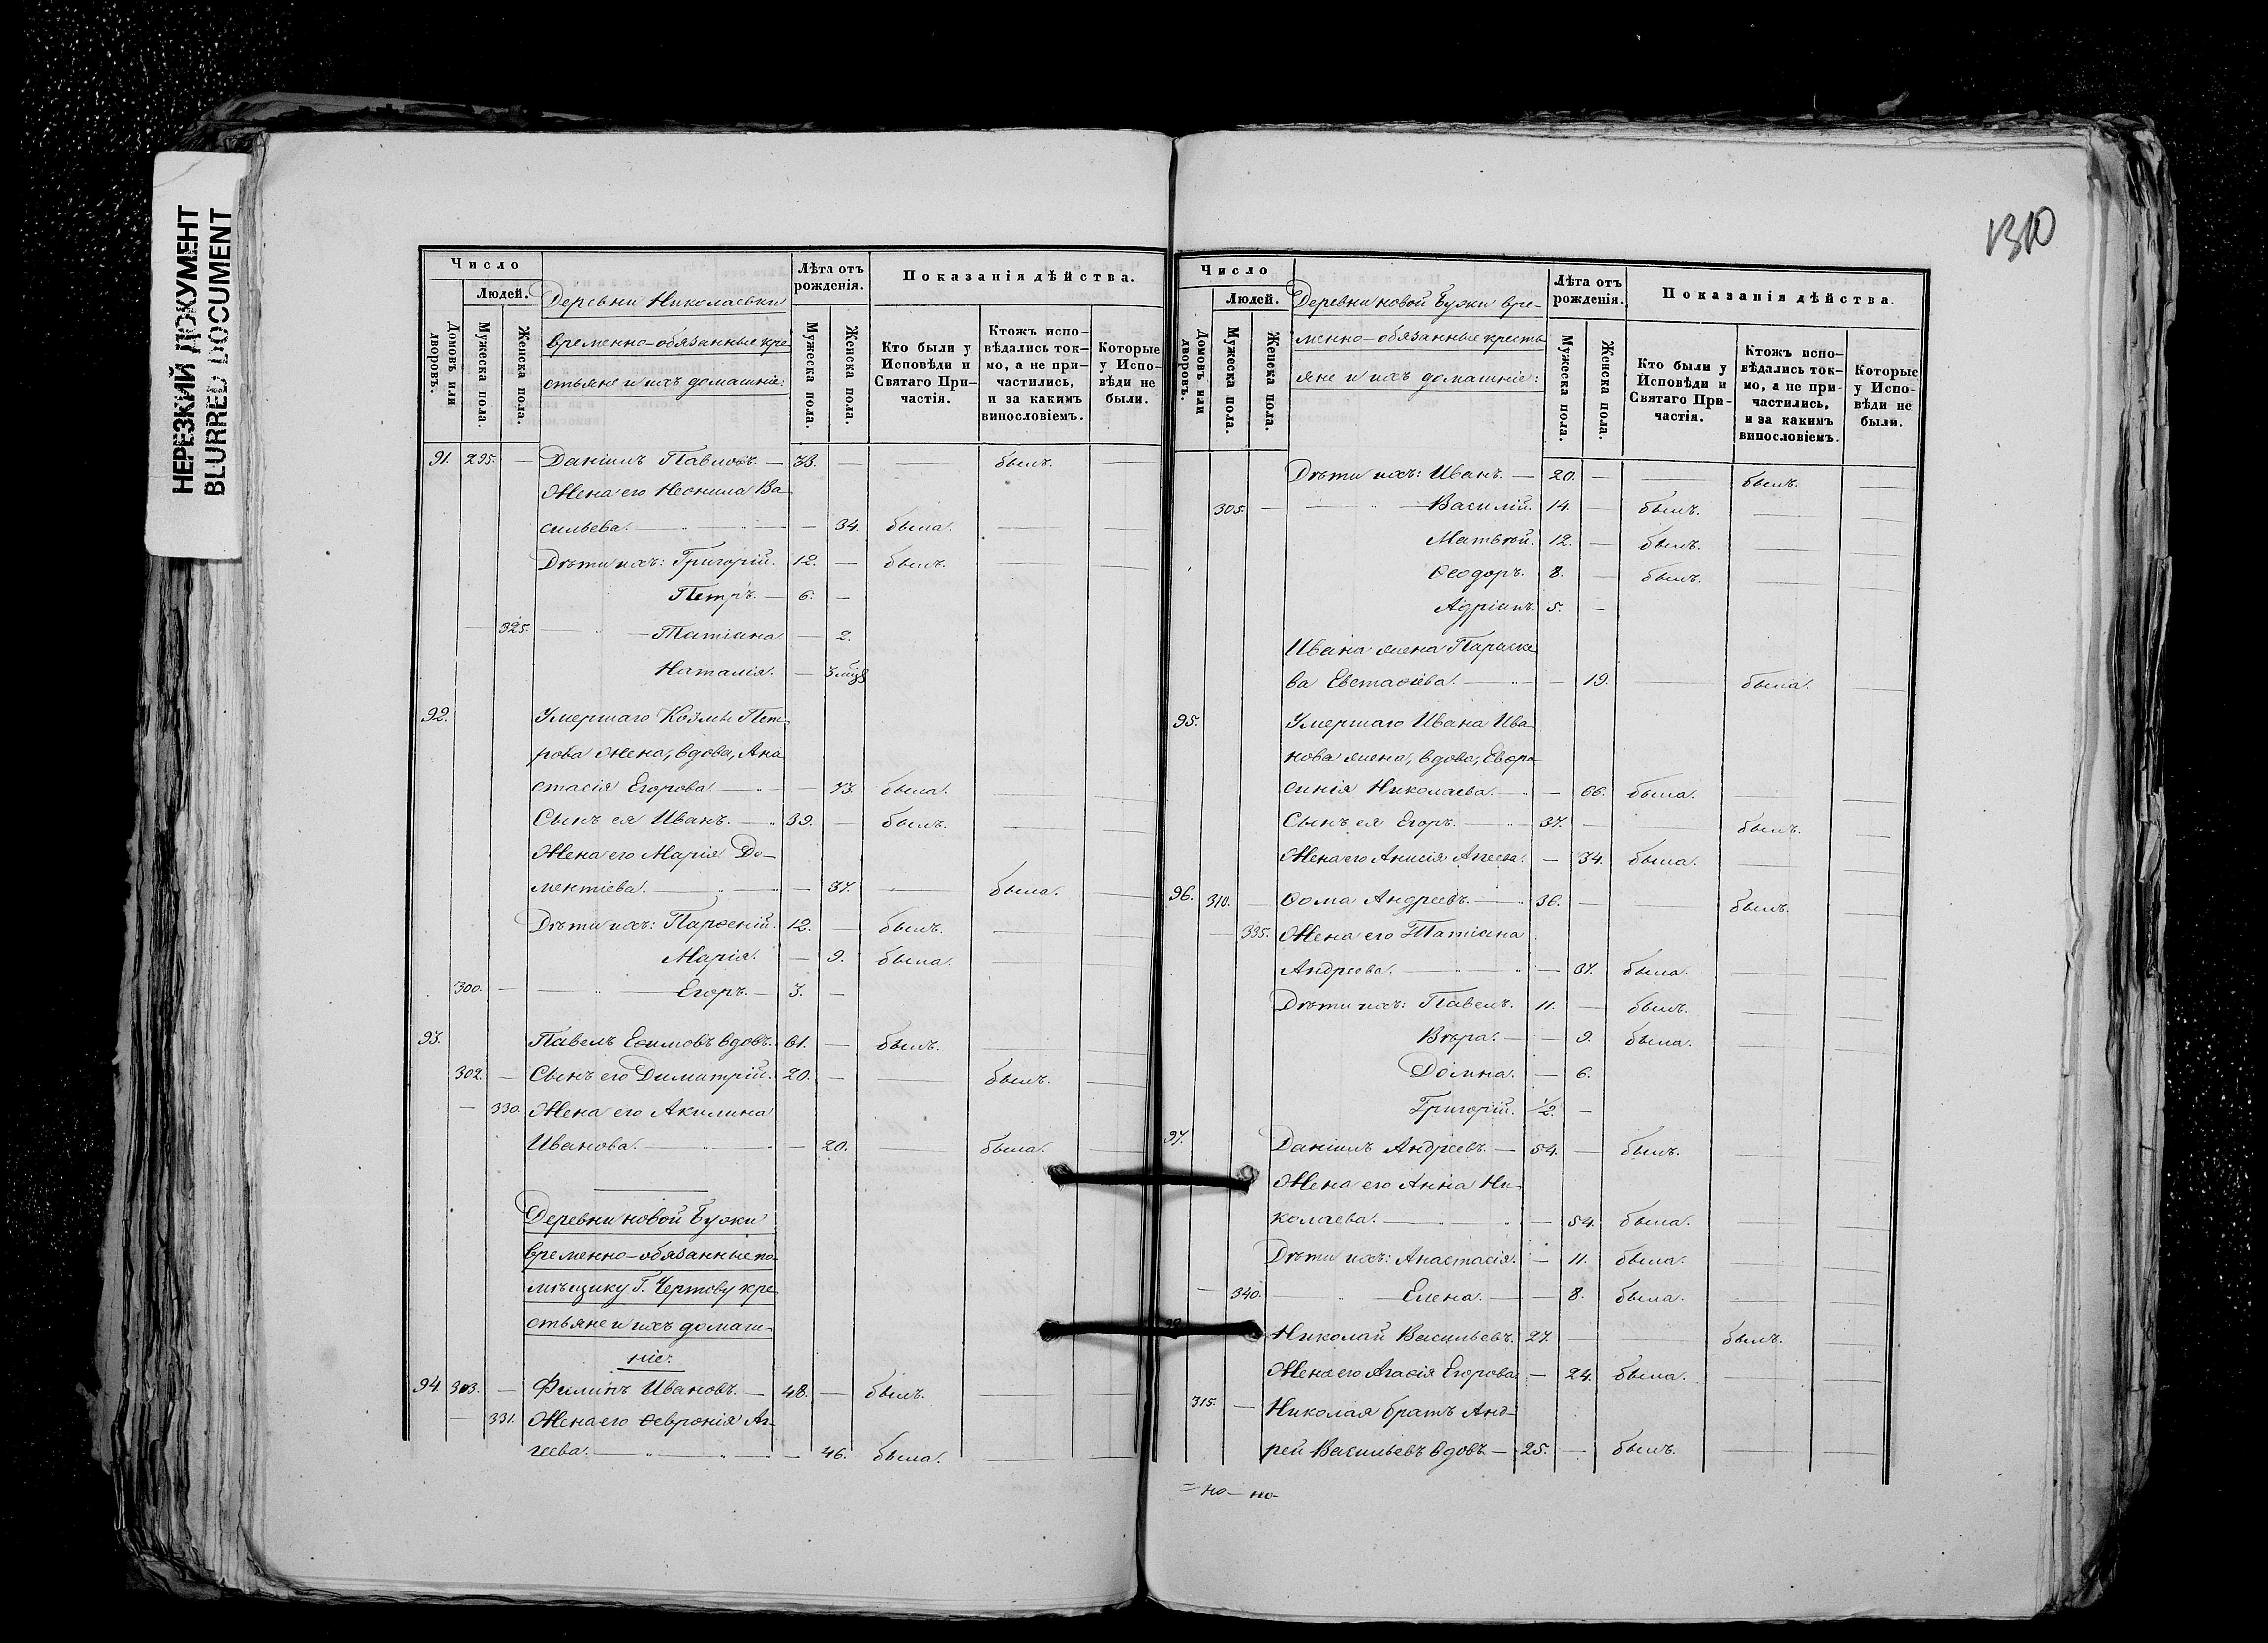 НЕРЕЗКИЙ ДОКУМЕНТ
BLURRED DOCUMENT
Число
Людей.
Домовъ или дворовъ.
Мужеска пола.
Женска пола.
Деревни Николаевки
временно-обязанные кре
стьяне и ихъ домашніе:
Лѣта отъ рожденія.
Мужеска пола.
Женска пола.
Показанія дѣйства.
Кто были у Исповѣди и Святаго Причастія.
Ктожъ исповѣдались токмо, а не причастились, и за какимъ винословіемъ.
Которые у Исповѣди не были.
91. 295. — Даніилъ Павловъ. — 33. — — былъ. —
Жена его Неонила Ва
сильева. — — 34. была. — —
Дѣти ихъ: Григорій. 12. — былъ. — —
Петръ. — 6. —
— 325. — Татіана. — 2.
Наталія. — 3 мѣс
92. Умершаго Козмы Пет
рова жена, вдова, Ана
стасія Егорова. — — 73. была. — —
Сынъ ея Иванъ. — 39. — былъ. — —
Жена его Марія До—
ментіева. — — 37. — была. —
Дѣти ихъ: Парѳеній. 12. — былъ. — —
Марія. — 9. была. — —
300. — — Егоръ. — 3. —
93. Павелъ Еѳимовъ вдовъ. 61. — былъ. — —
302. — Сынъ его Димитрій. 20. — — былъ. —
— 330. Жена его Акилина
Иванова. — — 20. — была. —
Деревни новой Бужи
временно-обязанные по
мѣщику Г. Черткову кре
стьяне и ихъ домаш—
ніе:
94. 303. — Филипъ Ивановъ. — 48. — былъ. — —
— 331. Жена его Ѳевронія Аг—
геева. — — 46. была. — —
1310
Число
Людей.
Домовъ или дворовъ.
Мужеска пола.
Женска пола.
Деревни новой Бужи вре—
менно-обязанные кресть
яне и ихъ домашніе:
Лѣта отъ рожденія.
Мужеска пола.
Женска пола.
Показанія дѣйства.
Кто были у Исповѣди и Святаго Причастія.
Ктожъ исповѣдались токмо, а не причастились, и за какимъ винословіемъ.
Которые у Исповѣди не были.
Дѣти ихъ: Иванъ. — 20. — — былъ. —
305. — — Василій. 14. — былъ. — —
Матвѣй. 12. — былъ. — —
Ѳеодоръ. 8. — былъ. — —
Адріанъ. 5. —
Ивана жена Параске
ва Евстаѳіева. — — 19. — была. —
95. Умершаго Ивана Ива
нова жена, вдова, Евфро—
синія Николаева. — — 66. была. — —
Сынъ ея Егоръ. — 37. — — былъ. —
Жена его Анисія Агеева. — 34. была. — —
96. 310. — Ѳома Андреевъ. — 36. — — былъ. —
— 335. Жена его Татіана
Андреева. — — 37. была. — —
Дѣти ихъ: Павелъ. 11. — былъ. — —
Вѣра. — — 9. была. — —
Домна. — 6.
Григорій. 1/2. —
97. Даніилъ Андреевъ. — 54. — былъ. — —
Жена его Анна Ни—
колаева. — — 54. была. — —
Дѣти ихъ: Анастасія. — 11. была. — —
— 340. — Елена. — — 8. была. — —
Николай Васильевъ. 27. — — былъ. —
Жена его Агаѳія Егорова. — 24. была. — —
315. — Николая братъ Анд—
рей Васильевъ вдовъ — 25. — былъ. — —
= но — но—